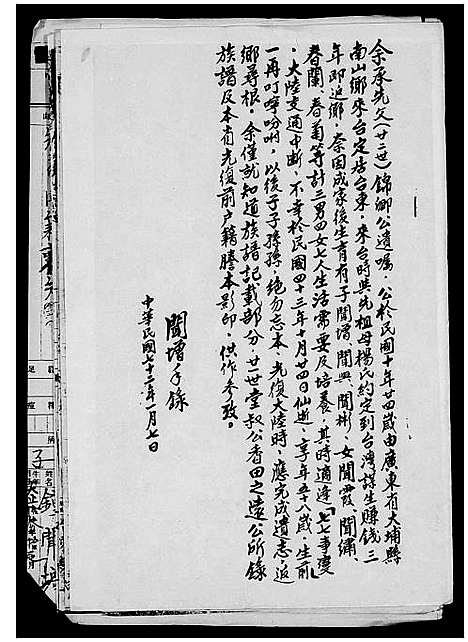 余承先父(廿二世)錦鄉公遺囑，公於民國十年廿四歲由廣東省大埔縣
南山鄉來台定居台東，來台時與先祖母楊氏約定到台灣謀生賺錢三
年即返鄉，奈因成家後生育有子聞增、聞興、聞彬、女聞霞、聞繡、
春蘭、春菊等計三男四女七人生活需要及培養，其時適逢「七七事變」
，大陸交通中斷，不幸於民國四十三年十月廿四日仙逝，享年五十八歲，生前
一再叮嚀吩咐，以後子子孫孫，絕勿忘本，光復大陸時，應完成遺志，返
鄉尋根，余僅就知道族譜記載部分，廿一世堂叔公香田之遠公所錄
族譜及本省光復前户籍謄本影印，供作參攷。
聞增手錄
中華民國七十二年一月七日
子